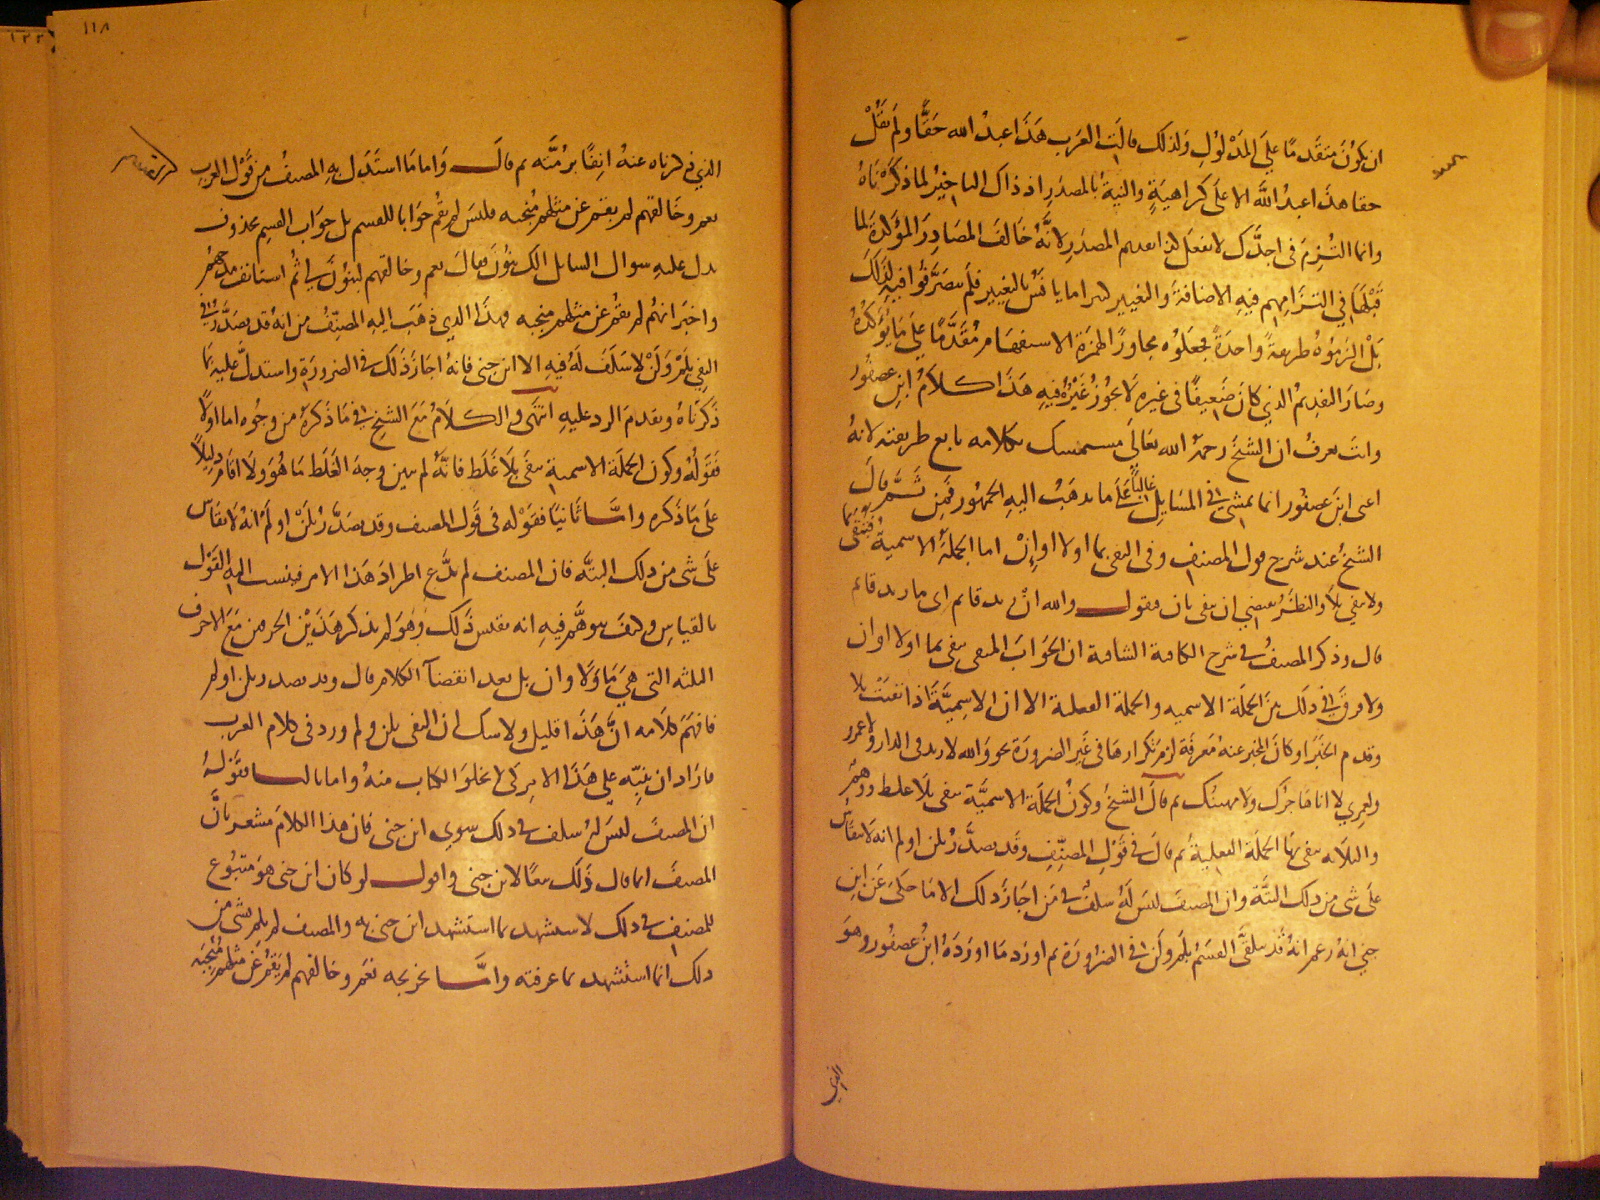 ان يكون متقدما على المدلول ولذلك قالت العرب هذا عبد الله حقا ولم تقل
حقا هذا عبد الله الا على كراهية والنية بالمصدر اذ ذاك التاخير لما ذكرناه
وانما التزم في اجدك لا تفعل لذا تقديم المصدر لانه خالف المصادر المؤكدة لما
قبلها في التزامهم فيه الاضافة والتغيير يانس بالتغيير فلم يتصرفوا فيه لذلك
بل الزموه طريقة واحدة فجعلوه مجاورا لهمزة الاستفهام مقدما على ما يؤكده
وصار التقديم الذي كان ضعيفا في غيره لا يجوز غيره فيه هذا كلام ابن عصفور
وانت تعرف ان الشيخ رحمه الله تعالى مستمسك بكلامه تابع طريقته لانه
اعني ابن عصفور انما يمشي في المسايل غالبا على ما يذهب اليه الجمهور فمن ثم قال
الشيخ عند شرح قول المصنف وفي النفي بما او لا او إن اما الجملة الاسمية فتنفى بما
ولا تنفى بلا والنظر يقتضي ان تنفى بان فتقول والله ان زيد قايم اى ما زيد قائم
قال وذكر المصنف في شرح الكافية الشافية ان الجواب المنفي ينفى بما او لا او ان
ولا فرق في ذلك بين الجملة الاسميه والجملة الفعلية الا ان الاسمية اذا نفيت بلا
وتقدم الخبر او كان المخبر عنه معرفة لزم تكرارها في غير الضرورة نحو والله لا زيد في الدار ولا عمرو
ولعمري لا انا هاجرك ولا مهينك ثم قال الشيخ وكون الجملة الاسمية تنفى بلا غلط ووهم
والثلاثة تنفى بها الجملة الفعلية ثم قال في قول المصنف وقد يصدر بلن او لم انه لا يقاس
على شى من ذلك البتة وان المصنف ليس له سلف في من اجاز ذلك الا ما حكى عن ابن
جني انه زعم انه قد يتلقى القسم بلم ولن في الضرورة ثم اورد ما اورده ابن عصفور وهو
الذي
١١٨
الذي ذكرناه عنه انفا برمته ثم قال واما ما استدل به المصنف من قول العرب
نعم وخالقهم لم يقم عن مثلهم منجبه فليس لم تقم جوابا للقسم بل جواب القسم محذوف
يدل عليه سوال السايل الك بنون فقال نعم وخالقهم لبنون لي ثم استانف مدحهم
واخبر انهم لم تقم عن مثلهم منجبه فهذا الذي ذهب اليه المصنف من انه قد يصدر في
النفي بلم ولن لا سلف له فيه الا ابن جني فانه اجاز ذلك في الضرورة واستدل عليه بما
ذكرناه وتقدم الرد عليه انتهى والكلام مع الشيخ في ما ذكره من وجوه اما اولا
فقوله وكون الجملة الاسمية تنفى بلا غلط فانه لم يبين وجه الغلط ما هو ولا اقام دليلا
على ما ذكره واما ثانيا فقوله في قول المصنف وقد يصدر بلن او لم انه لا يقاس
على شى من ذلك البتة فان المصنف لم يدع اطراد هذا الامر فينسب اليه القول
بالقياس وكيف يتوهم فيه انه يقيس ذلك وهو لم يذكر هذين الحرفين مع الاحرف
الثلثه التي هي ما ولا وان بل بعد انقضآ الكلام قال وقد يصدر بلن او لم
فافهم كلامه ان هذا قليل ولا شك ان النفي بلن ولم ورد في كلام العرب
فاراد ان ينبه على هذا الامر كي لا يخلو الكتاب منه واما ثالثا فقوله
ان المصنف ليس له سلف في ذلك سوى ابن جني فان هذا الكلام مشعر بان
المصنف انما قال ذلك تبعا لابن جني واقول لو كان ابن جني هو متبوع
للمصنف في ذلك لاستشهد بما استشهد ابن جني به والمصنف لم يلم بشى من
ذلك انما استشهد بما عرفته واما تخريجه نعم وخالقهم لم يقم عن مثلهم منجبه